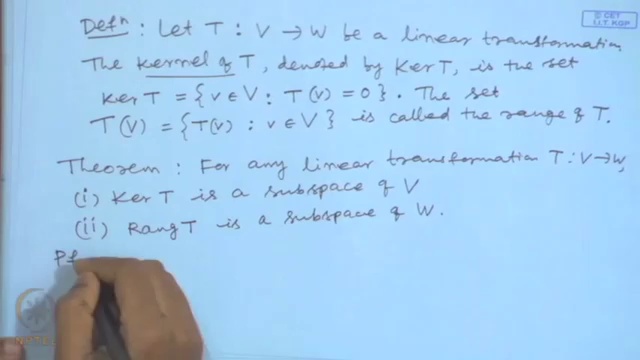 © CET
I.I.T. KGP
Defⁿ : Let T : V → W be a linear transformation
The Kernel of T, denoted by Ker T, is the set
Ker T = { v ∈ V : T(v) = 0 }. The set
T(V) = { T(v) : v ∈ V } is called the range of T.
Theorem : For any linear transformation T : V → W,
(i) Ker T is a subspace of V
(ii) Rang T is a subspace of W.
Pf
NPTEL